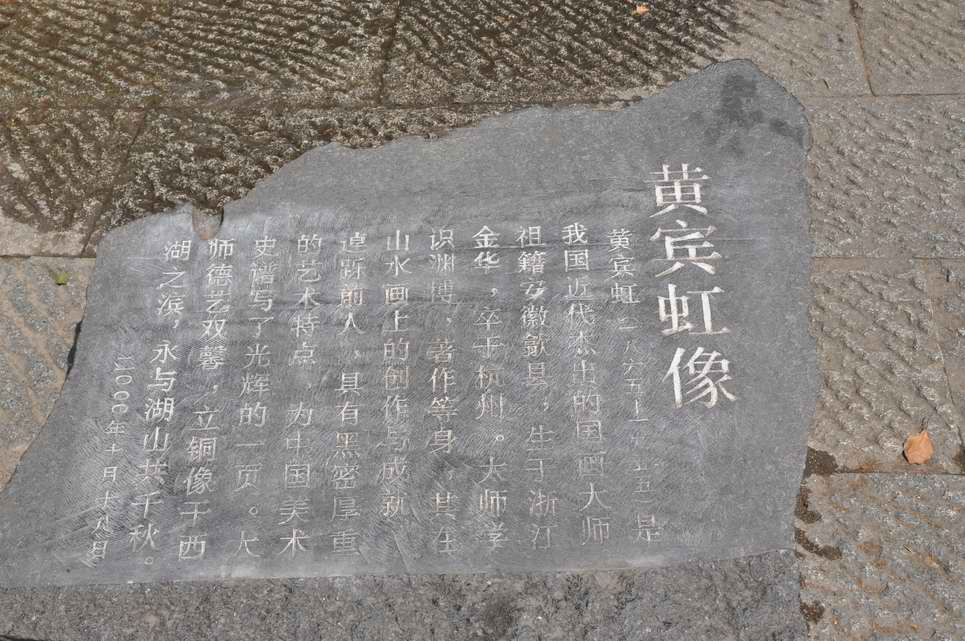 黄宾虹像
黄宾虹(一八六五—一九五五)是
我国近代杰出的国画大师
祖籍安徽歙县,生于浙江
金华,卒于杭州。大师学
识渊博、著作等身,其在
山水画上的创作与成就
逴跞前人,具有黑密厚重
的艺术特点,为中国美术
史谱写了光辉的一页。大
师德艺双馨,立铜像于西
湖之滨,永与湖山共千秋。
二〇〇〇年十月八日